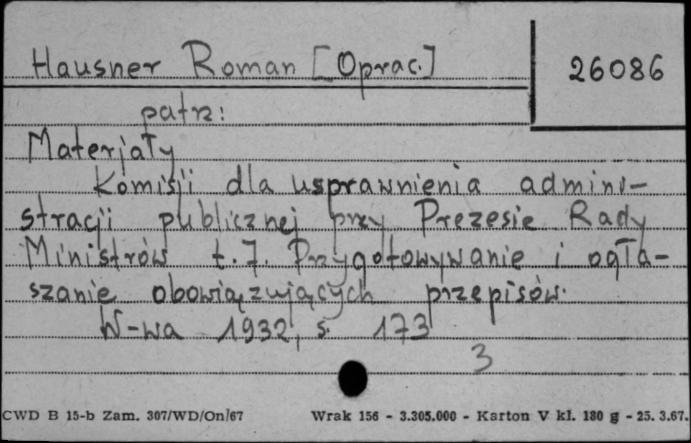 Hausner Roman [Oprac.]
26086
patrz:
Materjały
Komisji dla usprawnienia admini-
stracji publicznej przy Prezesie Rady
Ministrów t.7. Przygotowywanie i ogła-
szanie obowiązujących przepisów.
W-wa 1932, s. 173
3
CWD B 15-b Zam. 307/WD/On/67 Wrak 156 - 3.305.000 - Karton V kl. 180 g - 25. 3.67.